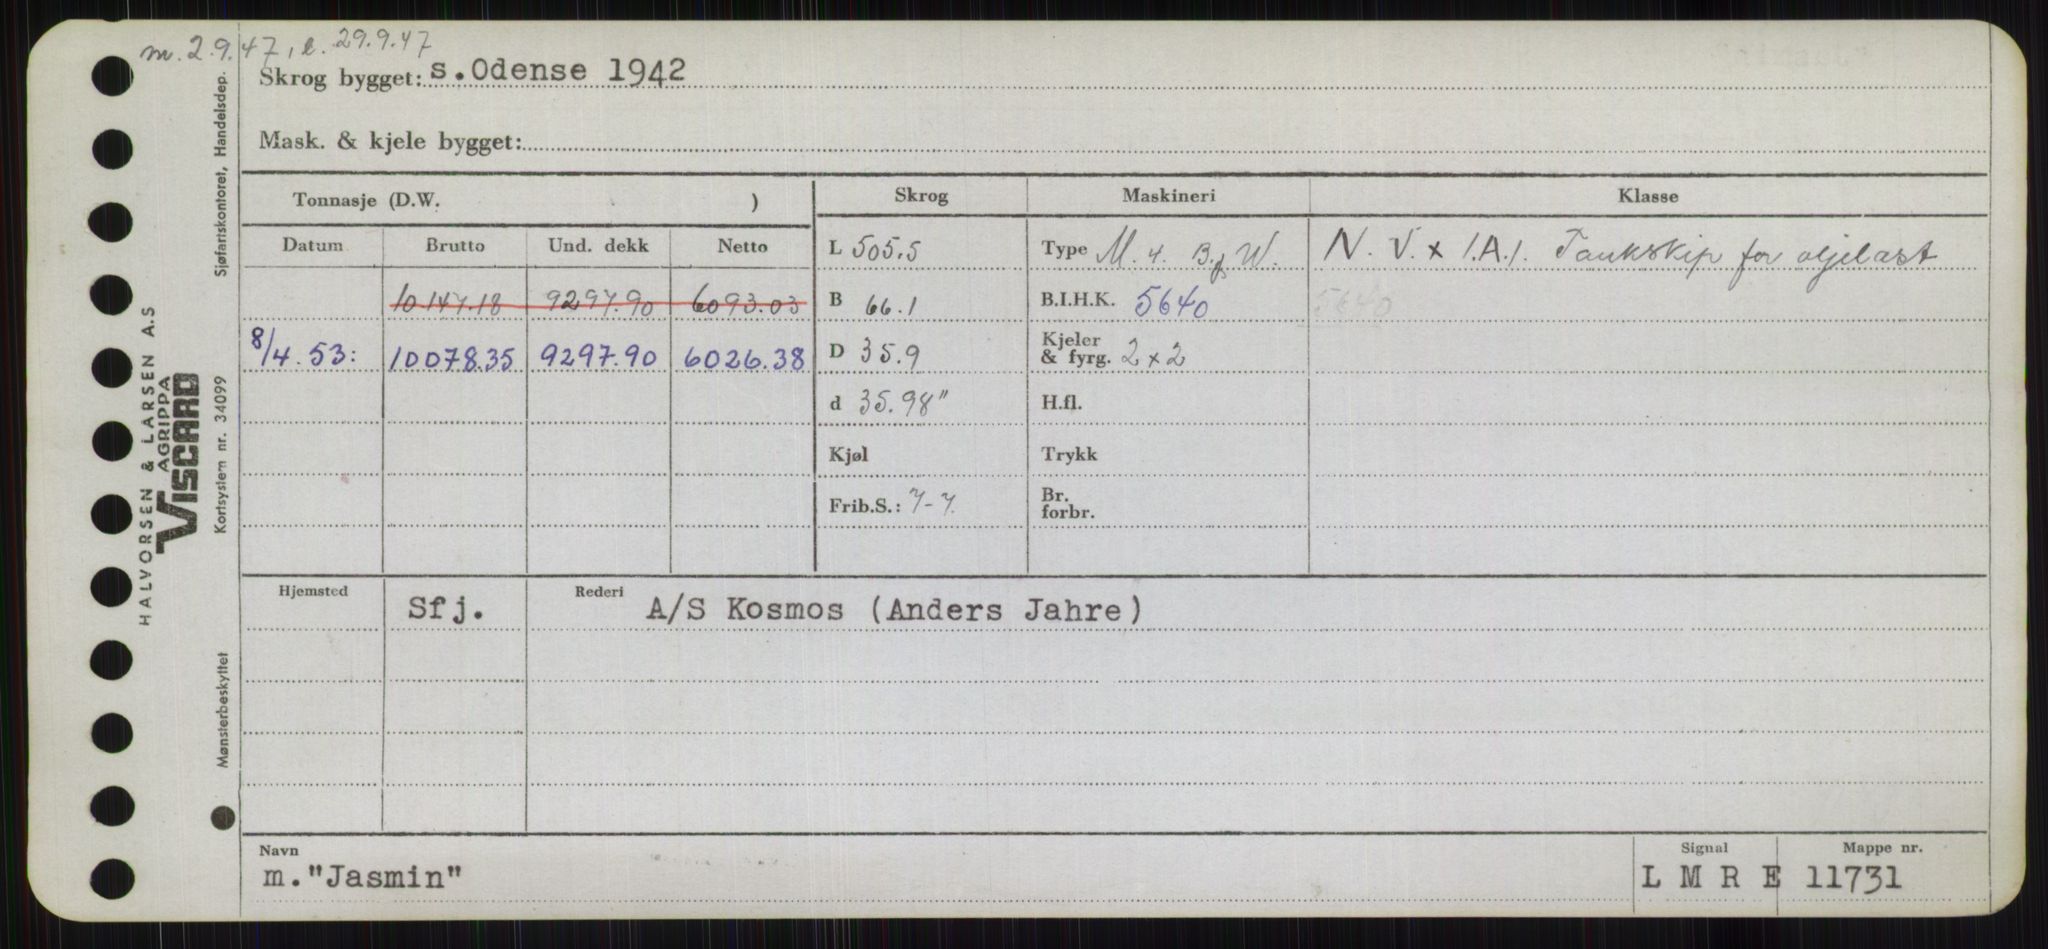 m. 2.9.47, l. 29.9.47
Skrog bygget: s. Odense 1942
Mask. & kjele bygget:
Tonnasje (D.W. ) Skrog Maskineri Klasse
Datum Brutto Und. dekk Netto L 505.5 Type M. 4. B. & W. N. V. x 1.A.1. Tankskip for oljelast
10147.18 9297.90 6093.03 B 66.1 B.I.H.K. 5640 5640
8/4. 53: 10078.35 9297.90 6026.38 D 35.9 Kjeler & fyrg. 2 x 2
d 35.98" H.fl.
Kjøl Trykk
Frib.S.: 7-7 Br. forbr.
Hjemsted Sfj. Rederi A/S Kosmos (Anders Jahre)
Navn Signal Mappe nr.
m. "Jasmin" L M R E 11731
HALVORSEN & LARSEN A.S
AGRIPPA
VISCARD
Mønsterbeskyttet Kortsystem nr. 34099 Sjøfartskontoret, Handelsdep.